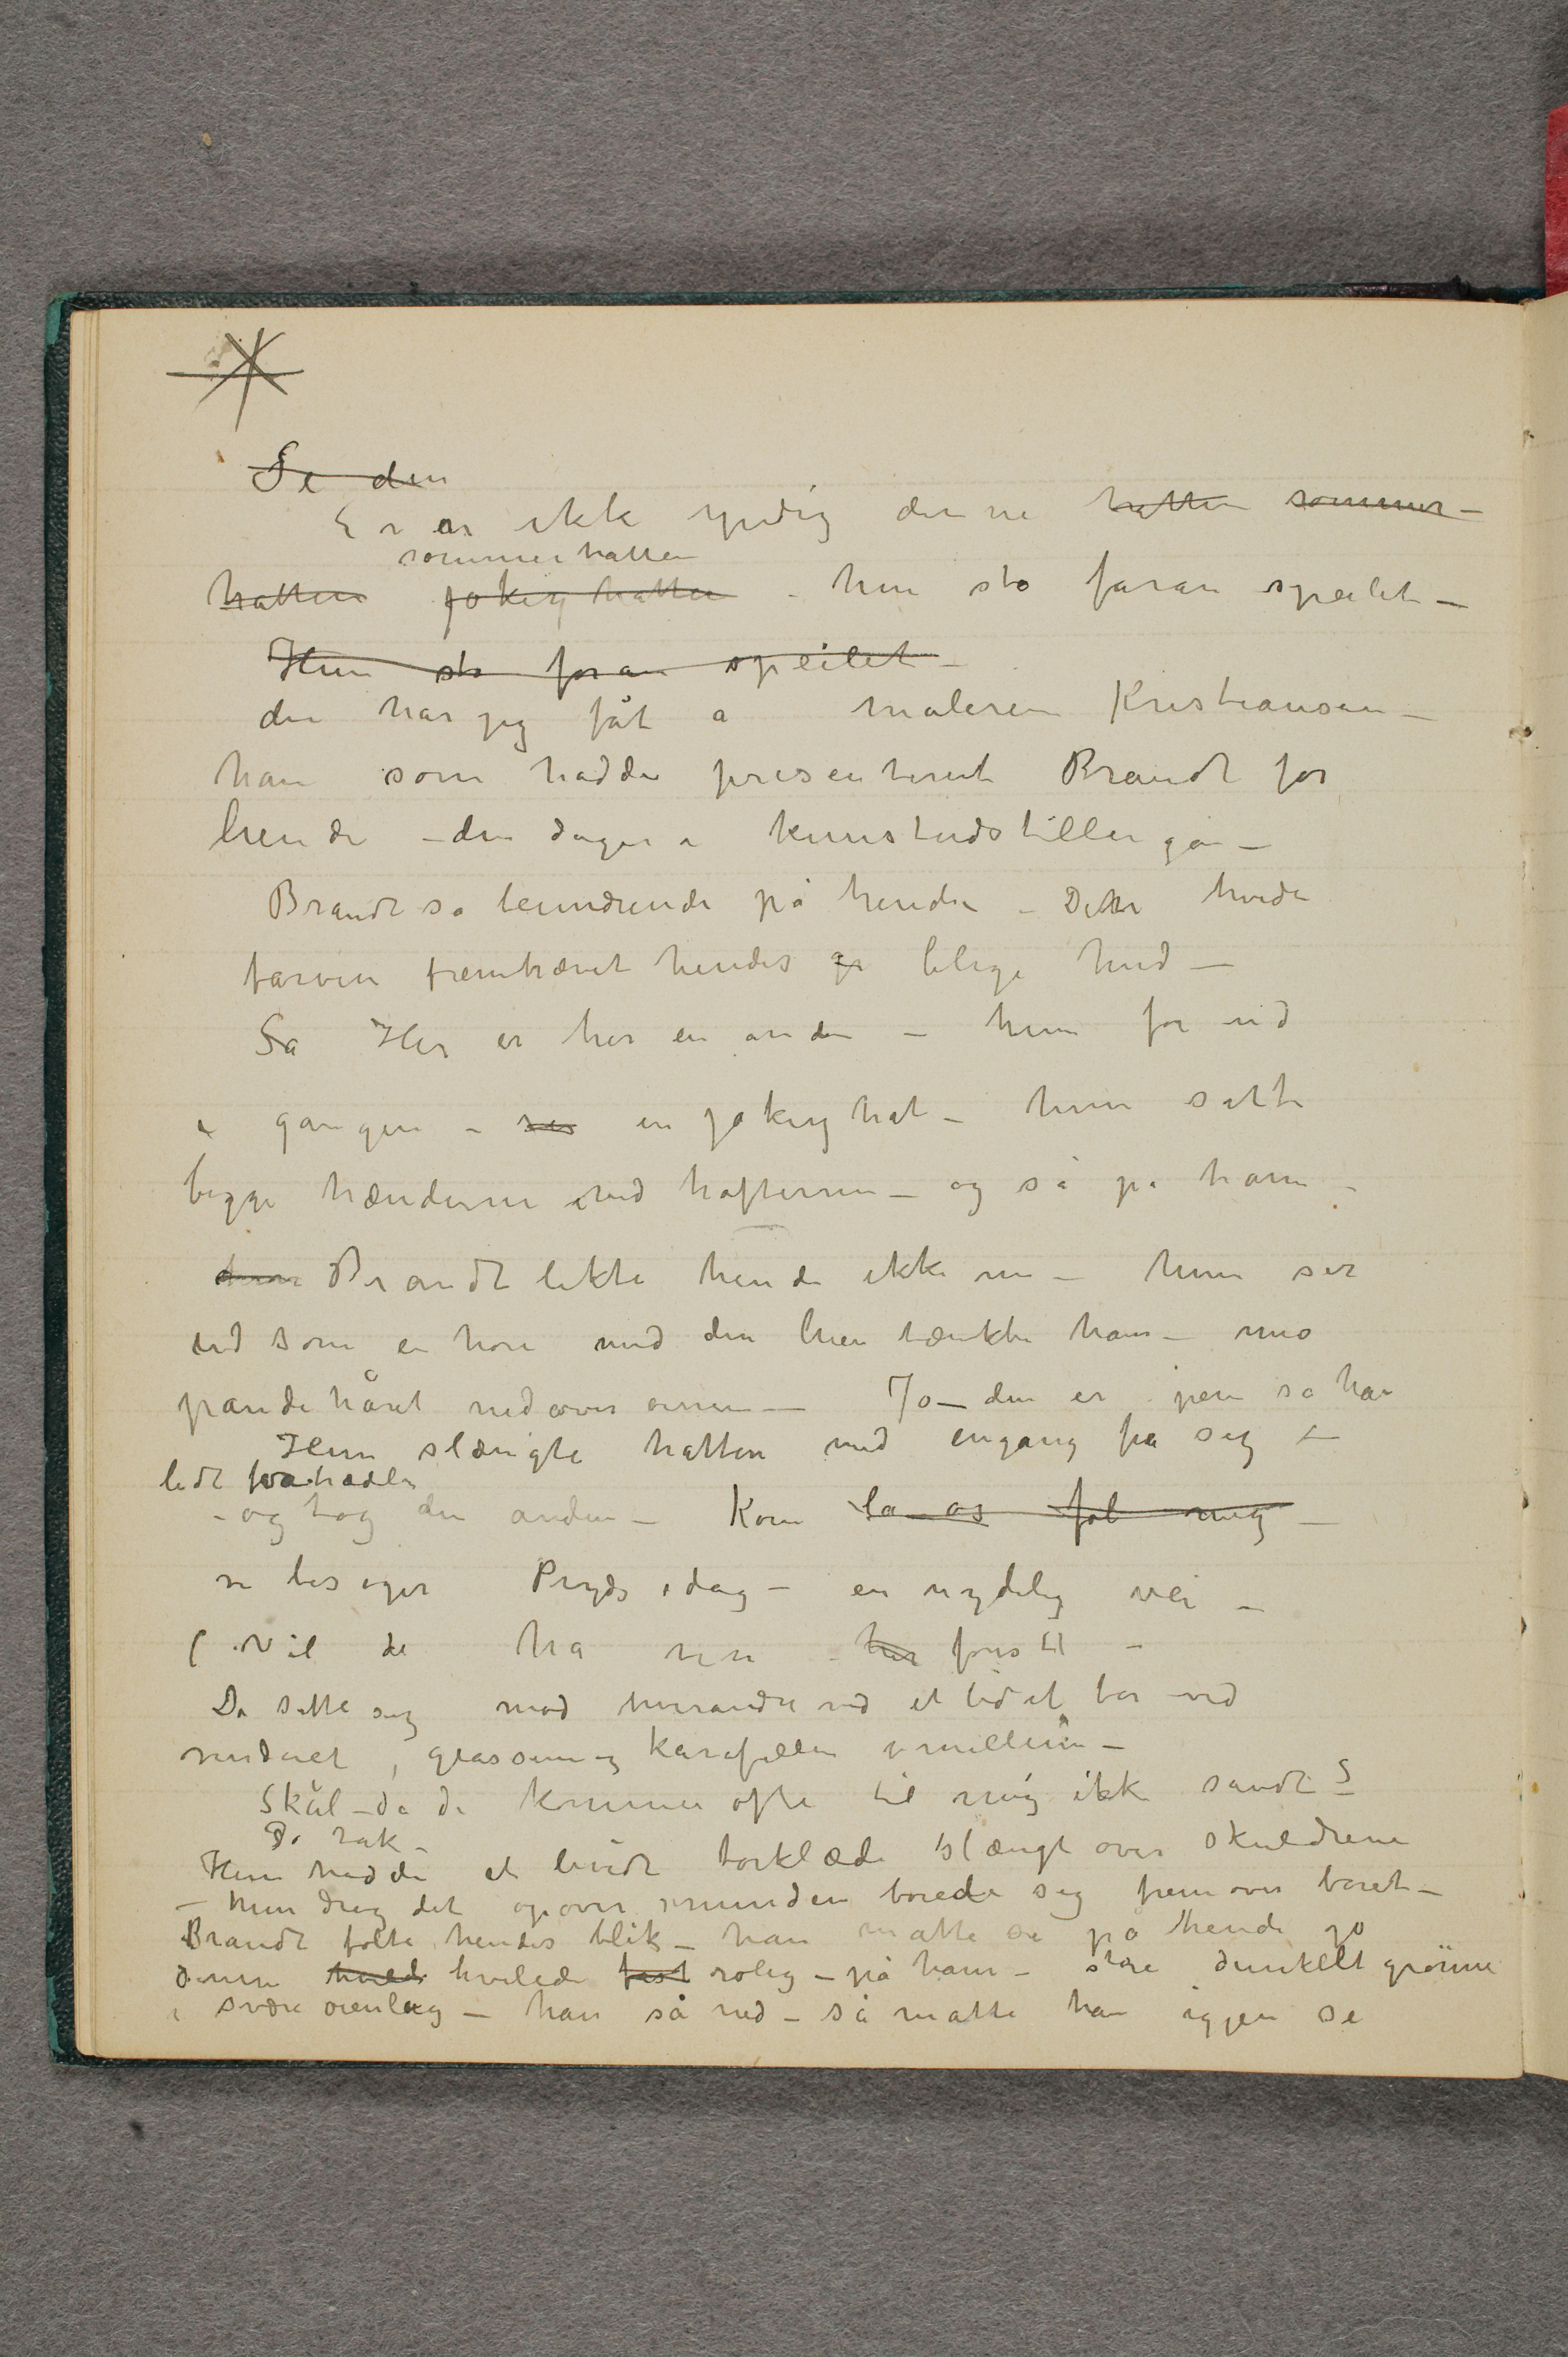 Se den
Er er ikke yndig denne hatten sommer–
sommerhatten
hatten jokeyhatten – hun sto foran speilet –
Hun sto foran speilet –
den har jeg fåt a maleren Kristiansen –
han som hadde presenteret Brandt for
hende – den dagen i kunstudstillingen –
Brandt så beundrende på hende – Den hvide
farven fremhævet hendes gr blege hud –
Så Her er her en anden – hun for ud
i gangen – se en jokeyhat – hun satte
begge hænderne ved hofterne – og så på ham –
hun Brandt likte hende ikke nu – hun ser
ud som en hore med den hue tænkte han – med
pandehåret nedover øinene – Jo – den er pen sa han
Hun slængte hatten med engang fra sig –
lidt
– og tog den anden – Kom la os føl mig –
vi besøger Pryds idag – en nydelig vei –
(Vil de ha vin – her først –
De satte sig mod hverandre ved et lidet bor ved
vinduet, glassene og karaflen imellem –
Skål – da de kommer ofte til mig ikke sandt –
De rak –
Hun hadde et hvidt torklæde slængt over skuldrene
– hun drog det opover munden boiede sig fremover boret –
Brandt folte hendes blik – han matte se på hende
oinene hvilede hvilede fast rolig – på ham – store dunkelt grönne
i svære oienlag – han så ned – så matte han iggjen se